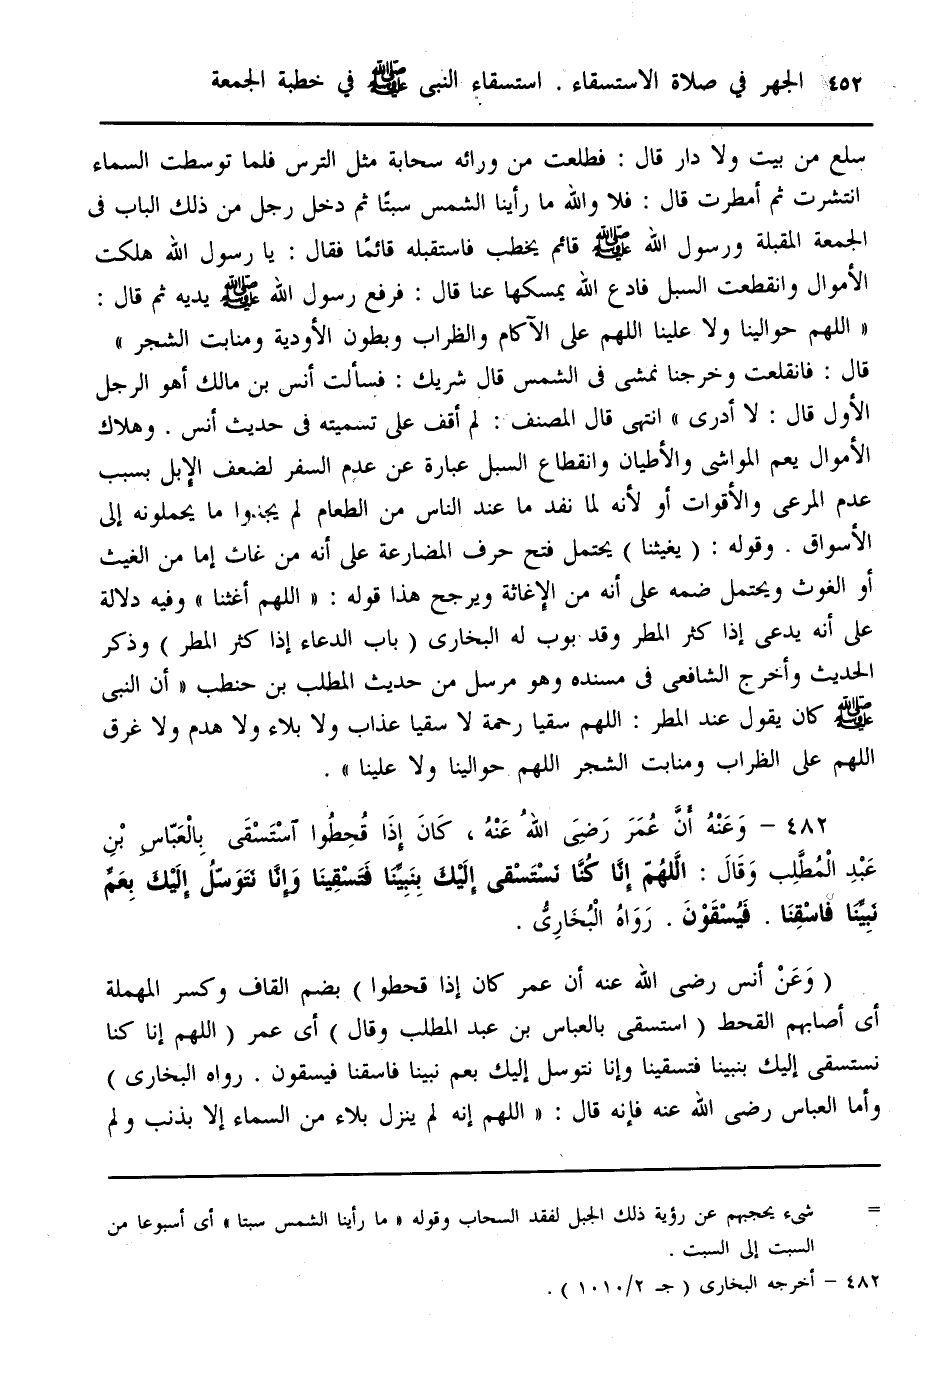 ٤٥٢ الجهر في صلاة الاستسقاء . استسقاء النبى ﷺ في خطبة الجمعة
سلع من بيت ولا دار قال : فطلعت من ورائه سحابة مثل الترس فلما توسطت السماء
انتشرت ثم أمطرت قال : فلا والله ما رأينا الشمس سبتًا ثم دخل رجل من ذلك الباب فى
الجمعة المقبلة ورسول الله ﷺ قائم يخطب فاستقبله قائمًا فقال : يا رسول الله هلكت
الأموال وانقطعت السبل فادع الله يمسكها عنا قال : فرفع رسول الله ﷺ يديه ثم قال :
« اللهم حوالينا ولا علينا اللهم على الآكام والظراب وبطون الأودية ومنابت الشجر »
قال : فانقلعت وخرجنا نمشى فى الشمس قال شريك : فسألت أنس بن مالك أهو الرجل
الأول قال : لا أدرى » انتهى قال المصنف : لم أقف على تسميته فى حديث أنس . وهلاك
الأموال يعم المواشى والأطيان وانقطاع السبل عبارة عن عدم السفر لضعف الإبل بسبب
عدم المرعى والأقوات أو لأنه لما نفد ما عند الناس من الطعام لم يجدوا ما يحملونه إلى
الأسواق . وقوله : ( يغيثنا ) يحتمل فتح حرف المضارعة على أنه من غاث إما من الغيث
أو الغوث ويحتمل ضمه على أنه من الإغاثة ويرجح هذا قوله : « اللهم أغثنا » وفيه دلالة
على أنه يدعى إذا كثر المطر وقد بوب له البخارى ( باب الدعاء إذا كثر المطر ) وذكر
الحديث وأخرج الشافعى فى مسنده وهو مرسل من حديث المطلب بن حنطب « أن النبى
ﷺ كان يقول عند المطر : اللهم سقيا رحمة لا سقيا عذاب ولا بلاء ولا هدم ولا غرق
اللهم على الظراب ومنابت الشجر اللهم حوالينا ولا علينا » .
٤٨٢ – وَعَنْهُ أَنَّ عُمَرَ رَضِىَ اللهُ عَنْهُ ، كَانَ إِذَا قُحِطُوا ٱسْتَسْقَى بِالْعَبَّاسِ بْنِ
عَبْدِ الْمُطَّلِب وَقَالَ : اللَّهُمّ إِنَّا كُنَّا نَسْتَسْقى إِلَيْكَ بِنَبِيِّنَا فَتَسْقِينَا وَإِنَّا نَتَوَسّلُ إِلَيْكَ بِعَمِّ
نَبِيِّنَا فَاسْقِنَا . فَيُسْقَوْنَ . رَوَاهُ الْبُخَارِىُّ .
( وَعَنْ أنس رضى الله عنه أن عمر كان إذا قحطوا ) بضم القاف وكسر المهملة
أى أصابهم القحط ( استسقى بالعباس بن عبد المطلب وقال ) أى عمر ( اللهم إنا كنا
نستسقى إليك بنبينا فتسقينا وإنا نتوسل إليك بعم نبينا فاسقنا فيسقون . رواه البخارى )
وأما العباس رضى الله عنه فإنه قال : « اللهم إنه لم ينزل بلاء من السماء إلا بذنب ولم
= شىء يحجبهم عن رؤية ذلك الجبل لفقد السحاب وقوله « ما رأينا الشمس سبتا » أى أسبوعا من
السبت إلى السبت .
٤٨٢ – أخرجه البخارى ( جـ ١٠١٠/٢ ) .